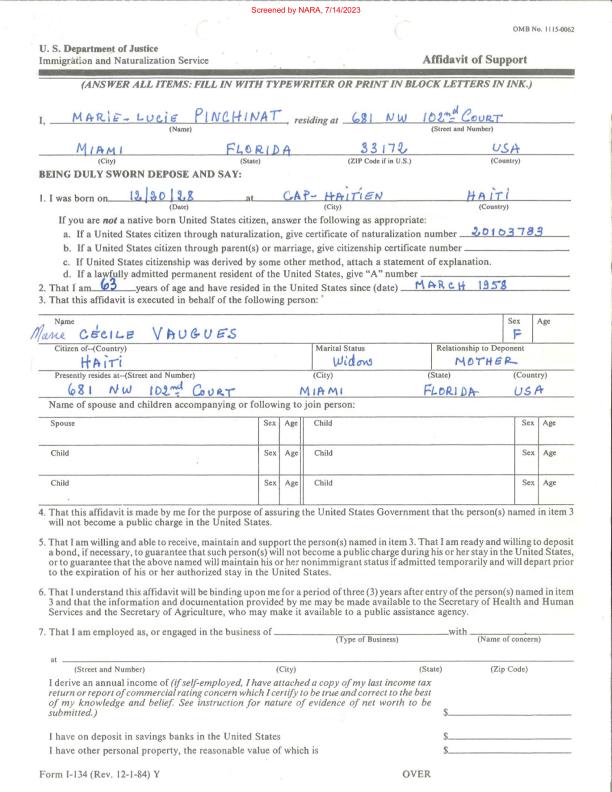 Screened by NARA, 7/14/2023
OMB No. 1115-0062
U. S. Department of Justice
Immigration and Naturalization Service Affidavit of Support
(ANSWER ALL ITEMS: FILL IN WITH TYPEWRITER OR PRINT IN BLOCK LETTERS IN INK.)
I, MARIE-LUCIE PINCHINAT, residing at 681 NW 102nd COURT
(Name) (Street and Number)
MIAMI FLORIDA 33172 USA
(City) (State) (ZIP Code if in U.S.) (Country)
BEING DULY SWORN DEPOSE AND SAY:
1. I was born on 12/20/28 at CAP-HAITIEN HAITI
(Date) (City) (Country)
If you are not a native born United States citizen, answer the following as appropriate:
a. If a United States citizen through naturalization, give certificate of naturalization number 20103783
b. If a United States citizen through parent(s) or marriage, give citizenship certificate number
c. If United States citizenship was derived by some other method, attach a statement of explanation.
d. If a lawfully admitted permanent resident of the United States, give "A" number
2. That I am 63 years of age and have resided in the United States since (date) MARCH 1958
3. That this affidavit is executed in behalf of the following person:
Name Sex Age
Marie CÉCILE VAUGUES F
Citizen of--(Country) Marital Status Relationship to Deponent
HAITI Widow MOTHER
Presently resides at--(Street and Number) (City) (State) (Country)
681 NW 102nd COURT MIAMI FLORIDA USA
Name of spouse and children accompanying or following to join person:
Spouse Sex Age Child Sex Age
Child Sex Age Child Sex Age
Child Sex Age Child Sex Age
4. That this affidavit is made by me for the purpose of assuring the United States Government that the person(s) named in item 3
will not become a public charge in the United States.
5. That I am willing and able to receive, maintain and support the person(s) named in item 3. That I am ready and willing to deposit
a bond, if necessary, to guarantee that such person(s) will not become a public charge during his or her stay in the United States,
or to guarantee that the above named will maintain his or her nonimmigrant status if admitted temporarily and will depart prior
to the expiration of his or her authorized stay in the United States.
6. That I understand this affidavit will be binding upon me for a period of three (3) years after entry of the person(s) named in item
3 and that the information and documentation provided by me may be made available to the Secretary of Health and Human
Services and the Secretary of Agriculture, who may make it available to a public assistance agency.
7. That I am employed as, or engaged in the business of with
(Type of Business) (Name of concern)
at
(Street and Number) (City) (State) (Zip Code)
I derive an annual income of (if self-employed, I have attached a copy of my last income tax
return or report of commercial rating concern which I certify to be true and correct to the best
of my knowledge and belief. See instruction for nature of evidence of net worth to be
submitted.) $
I have on deposit in savings banks in the United States $
I have other personal property, the reasonable value of which is $
Form I-134 (Rev. 12-1-84) Y OVER